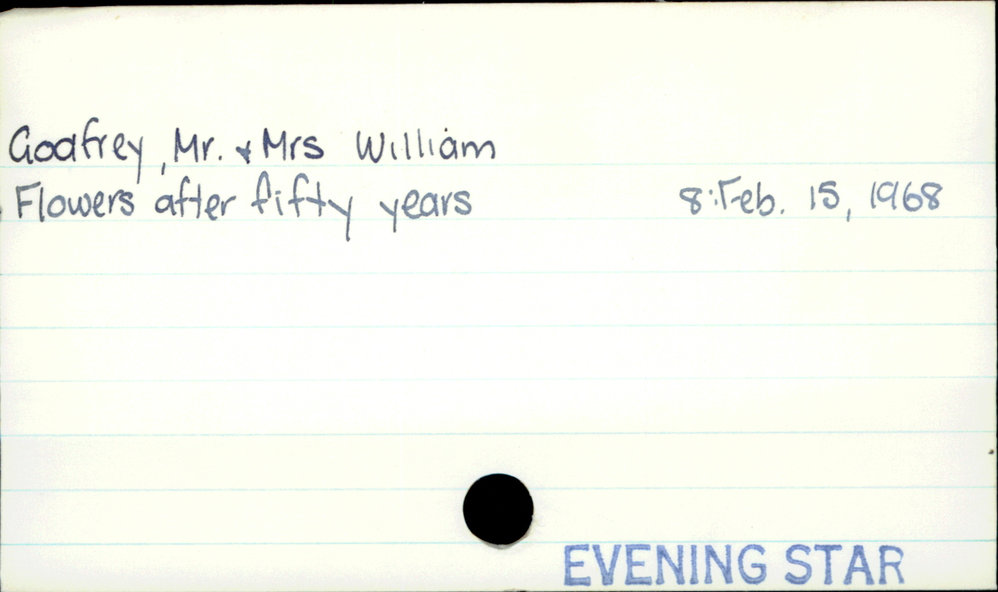 Godfrey, Mr. & Mrs William
Flowers after fifty years 8:Feb. 15, 1968
EVENING STAR